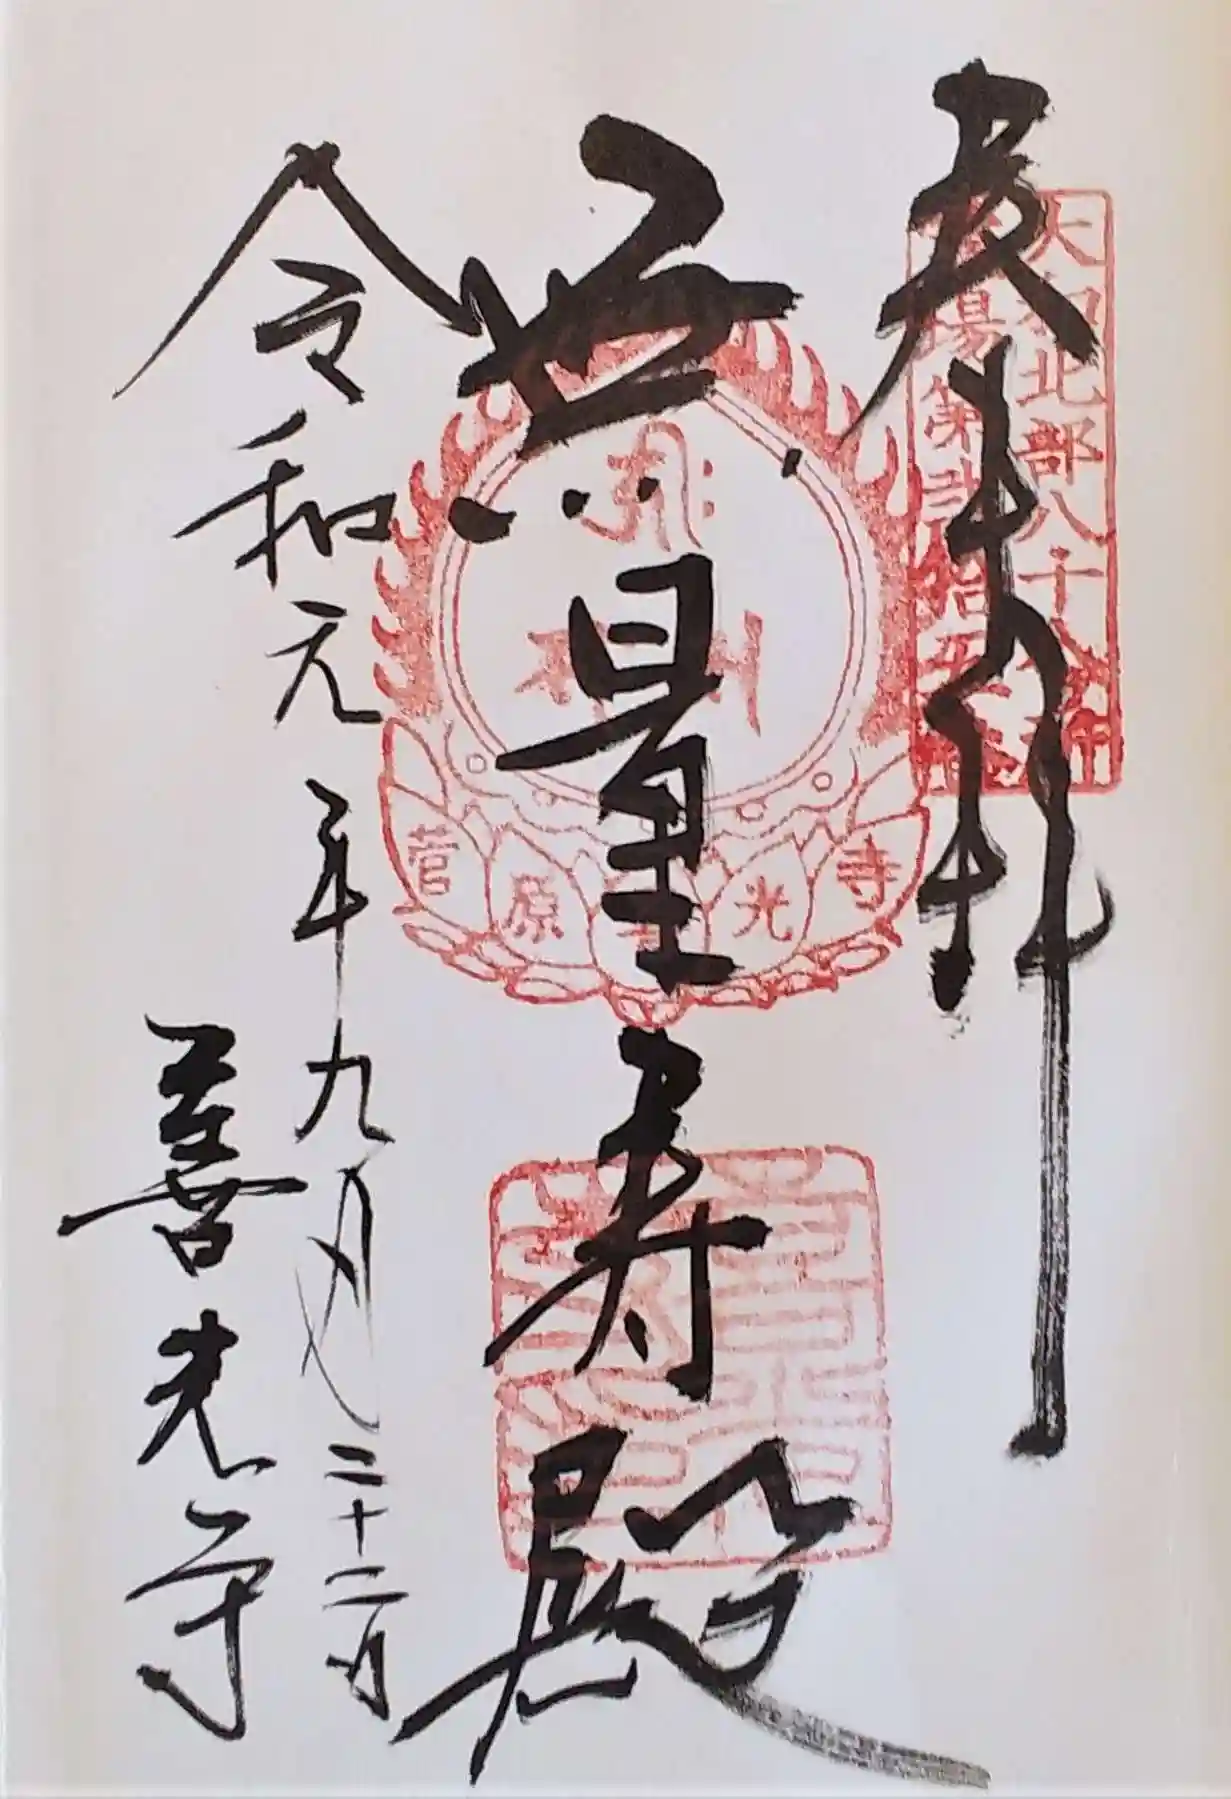 奉拝
大和北部八十八ヶ所
霊場第弐拾五番
無量寿殿
菅原 光寺
令和元年九月二十二日
善光寺